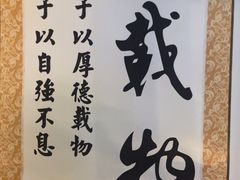 載物
子以厚德載物
子以自強不息